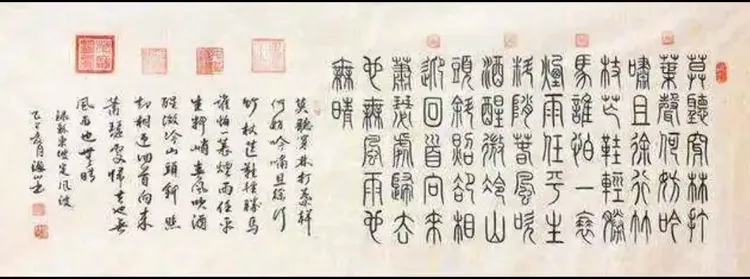 莫聽穿林打
葉聲何妨吟
嘯且徐行竹
杖芒鞋輕勝
馬誰怕一蓑
煙雨任平生
料峭春風吹
酒醒微冷山
頭斜照卻相
迎回首向來
蕭瑟處歸去
也無風雨也
無晴
莫聽穿林打葉聲
何妨吟嘯且徐行
竹杖芒鞋輕勝馬
誰怕一蓑煙雨任平
生料峭春風吹酒
醒微冷山頭斜照
卻相迎回首向來
蕭瑟處歸去也無
風雨也無晴
錄蘇東坡定風波